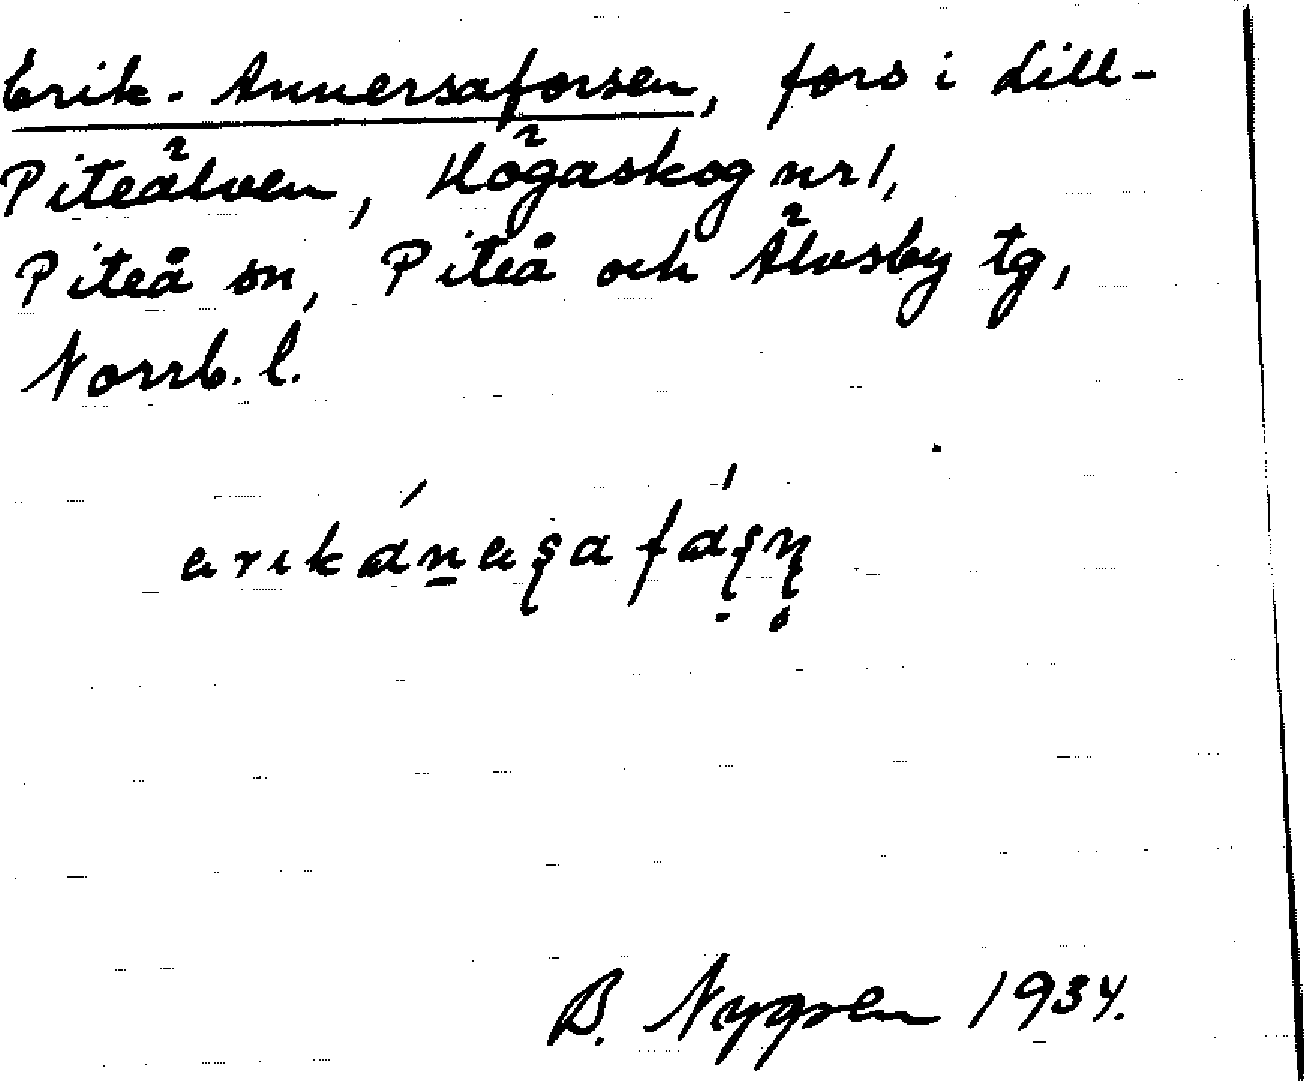 Erik-Annersaforsen, fors i Lill-
Piteälven, Högaskog nr 1,
Piteå sn, Piteå och Älvsby tg,
Norrb. l.
B. Nygren 1934.